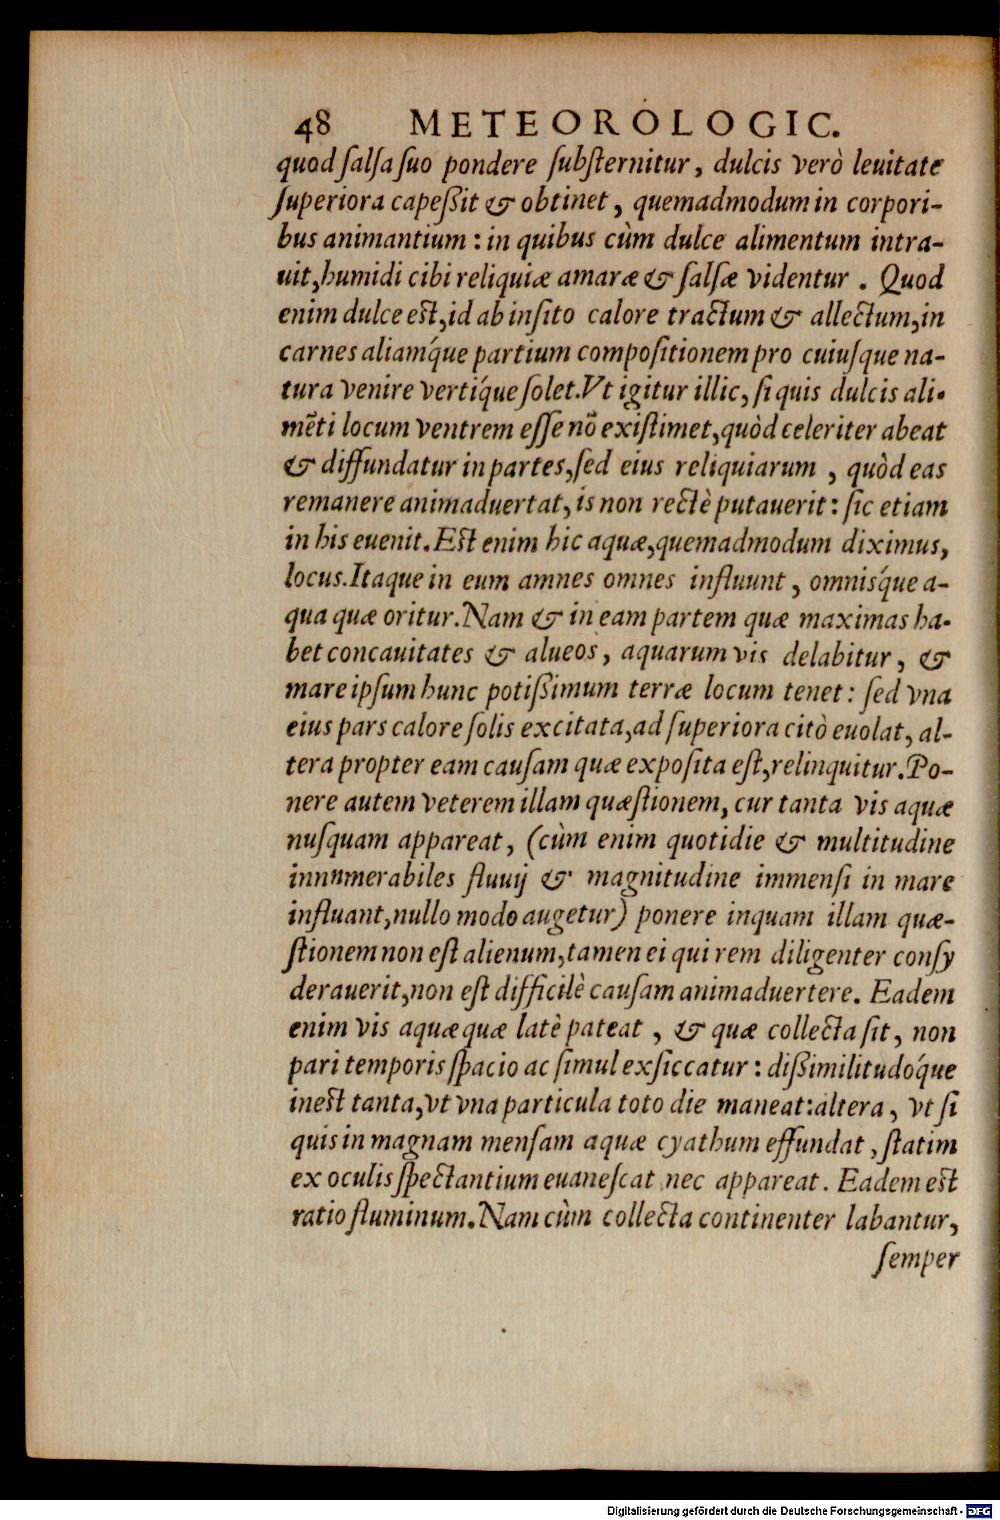 48 METEOROLOGIC.
quod ſalſa ſuo pondere ſubſternitur, dulcis verò leuitate
ſuperiora capeßit & obtinet, quemadmodum in corpori-
bus animantium : in quibus cùm dulce alimentum intra-
uit, humidi cibi reliquiæ amaræ & ſalſæ videntur . Quod
enim dulce est, id ab inſito calore tractum & allectum, in
carnes aliamq́ue partium compoſitionem pro cuiuſque na-
tura venire vertiq́ue ſolet. Vt igitur illic, ſi quis dulcis ali-
mẽti locum ventrem eſſe nõ exiſtimet, quòd celeriter abeat
& diffundatur in partes, ſed eius reliquiarum , quòd eas
remanere animaduertat, is non rectè putauerit : ſic etiam
in his euenit. Est enim hic aquæ, quemadmodum diximus,
locus. Itaque in eum amnes omnes influunt , omnisq́ue a-
qua quæ oritur. Nam & in eam partem quæ maximas ha-
bet concauitates & alueos, aquarum vis delabitur, &
mare ipſum hunc potißimum terræ locum tenet : ſed vna
eius pars calore ſolis excitata, ad ſuperiora citò euolat, al-
tera propter eam cauſam quæ expoſita eſt, relinquitur. Po-
nere autem veterem illam quæſtionem, cur tanta vis aquæ
nuſquam appareat, (cùm enim quotidie & multitudine
innumerabiles fluuij & magnitudine immenſi in mare
influant, nullo modo augetur) ponere inquam illam quæ-
ſtionem non eſt alienum, tamen ei qui rem diligenter conſy
derauerit, non eſt difficilè cauſam animaduertere. Eadem
enim vis aquæ quæ latè pateat , & quæ collecta ſit, non
pari temporis ſpacio ac ſimul exſiccatur : dißimilitudoq́ue
inest tanta, vt vna particula toto die maneat: altera , vt ſi
quis in magnam menſam aquæ cyathum effundat , ſtatim
ex oculis ſpectantium euaneſcat nec appareat. Eadem est
ratio fluminum. Nam cùm collecta continenter labantur,
ſemper
Digitalisierung gefördert durch die Deutsche Forschungsgemeinschaft - DFG